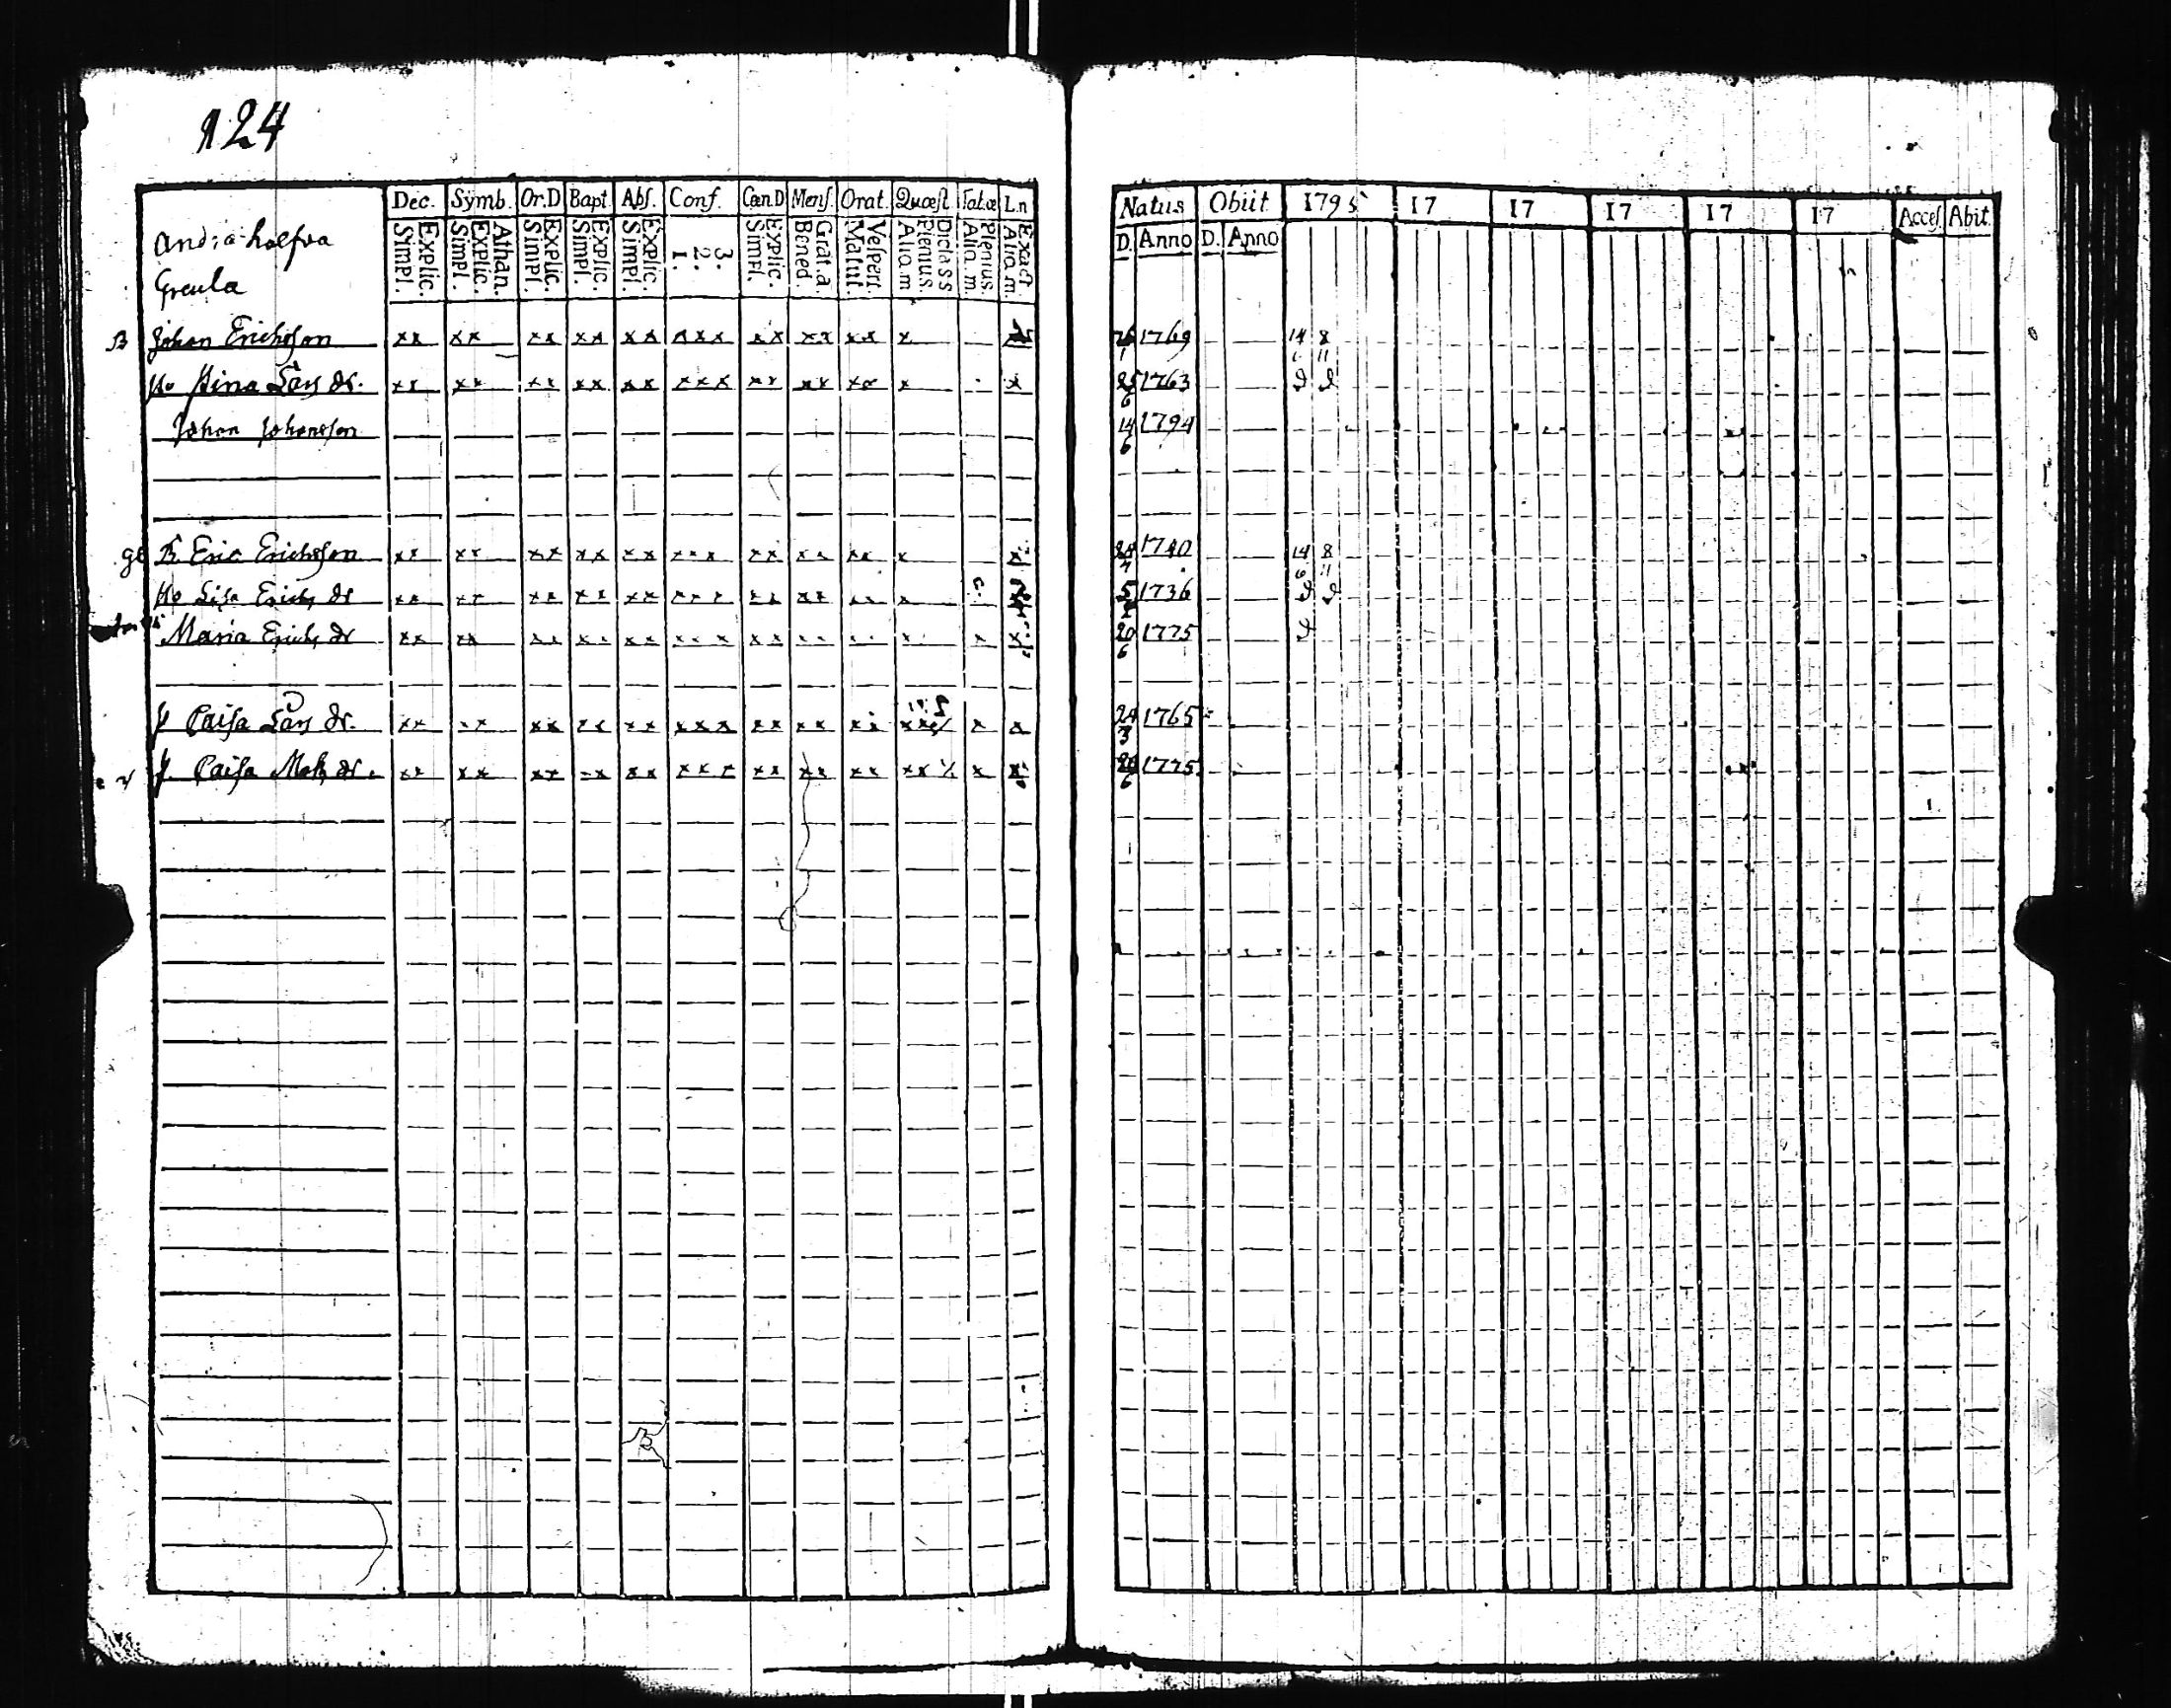 124
Dec. Symb. Or.D Bapt. Abs. Conf. Cæn.D Mens. Orat. Quæst. Tabæ L.n
Natus Obiit 1795 17 17 17 17 17 Acces. Abit.
Explic. Simpl. Athan. Explic. Simpl. Explic. Simpl. Explic. Simpl. Explic. Simpl. 3. 2. 1. Explic. Simpl. Grat.a Bened. Vespert. Matut. Dicta SS Plenius Aliq.m Plenius Aliq.m Exact Aliq.m
D. Anno D. Anno
Andra halfva
Greula
B Johan Erichsson xx xx xx xx xx xxx xx xx xx x 1769 14 8
6 11
Ho Stina Lars dr. xx xx xx xx xx xxx xx xx xx x x 25 1763
6
Johan Johansson 14 1794
6
B. Eric Ericsson xx xx xx xx xx xxx xx xx xx x 1740 14 8
6 11
Ho Lisa Erichs dr xx xx xx xx xx xxx xx xx xx x 5 1736
Maria Erichs dr xx xx xx xx xx xxx xx xx xx x x x 20 1775
6
P Caisa Lars dr. xx xx xx xx xx xxx xx xx xx x x 24 1765
3
P. Caisa Mats dr. xx xx xx xx xx xxx xx xx xx xx x x 1775
6